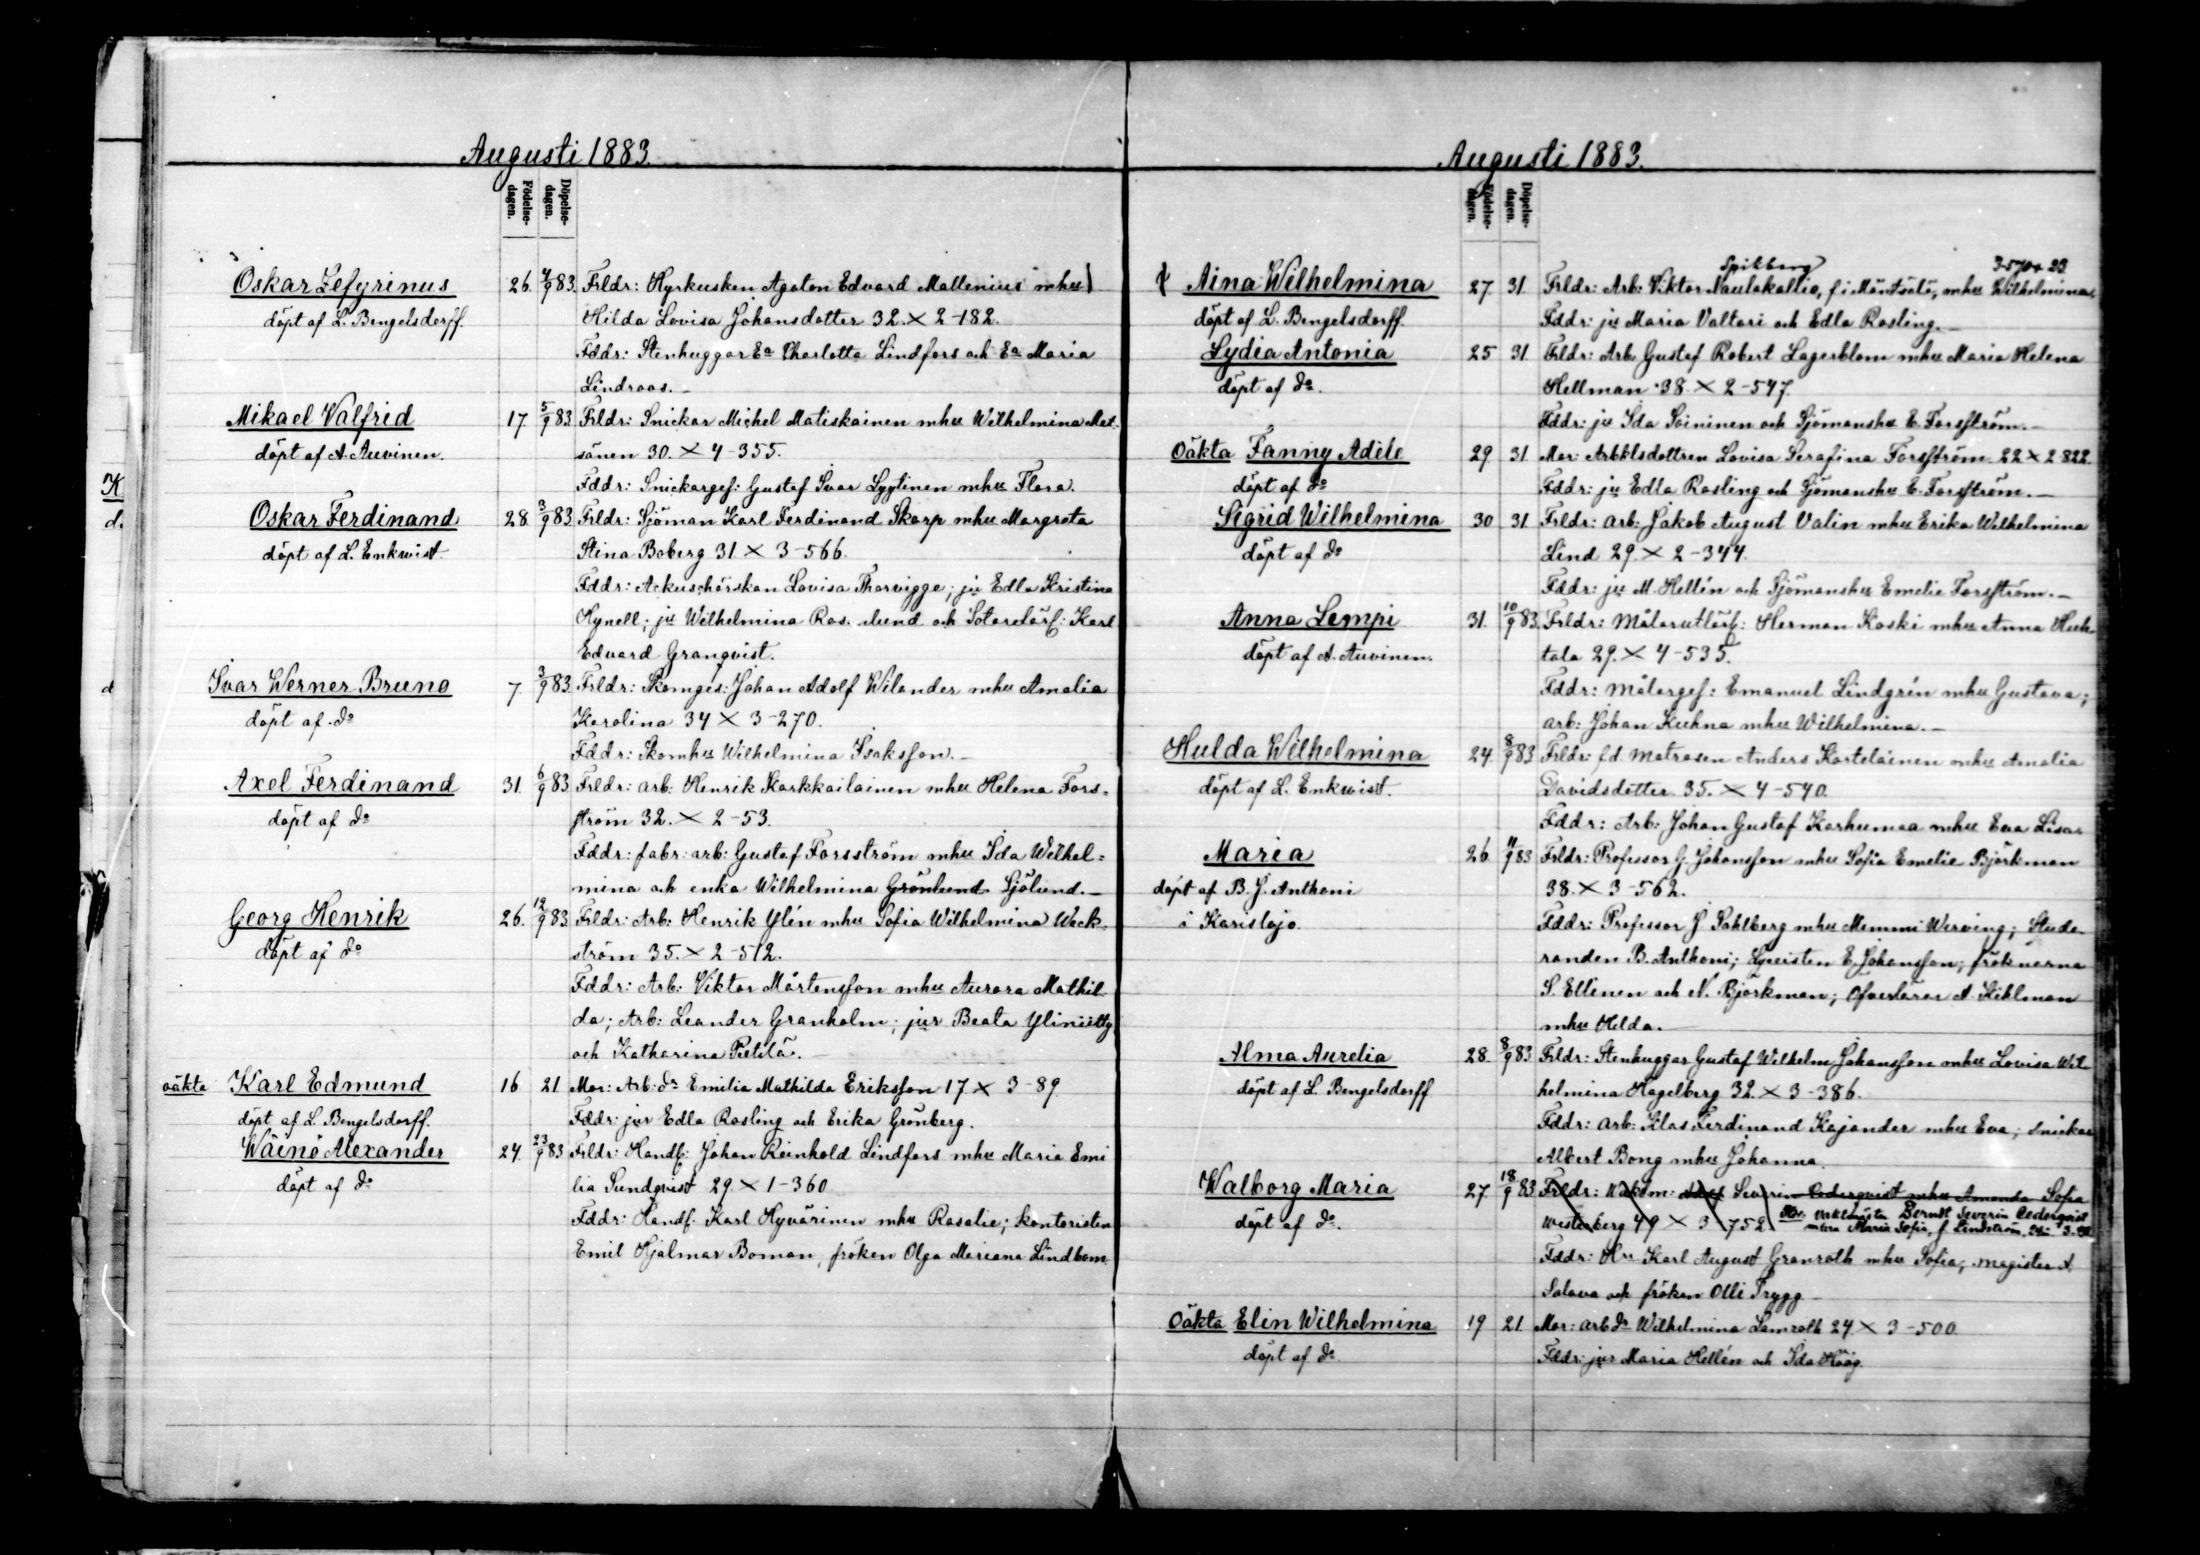 Augusti 1883.
Födelse-dagen.
Döpelse-dagen.
Oskar Zefyrinus 26. 4/9 83. Frldr: Hyrkusken Agaton Edvard Mallenius mhu
döpt af L. Bengelsdorff. Hilda Lovisa Johansdotter 32. × 2-182.
Fddr: Stenhuggar Ea Charlotta Lindfors och Ea Maria
Lindroos.
Mikael Valfrid 17. 5/9 83 Frldr: Snickar Michel Matiskainen mhu Wilhelmina Mat-
döpt af A. Auvinen. sänen 30. × 4-355.
Fddr: Snickargef: Gustaf Ivar Lyytinen mhu Flora.
K
d.
Oskar Ferdinand 28. 3/9 83. Frldr: Sjöman Karl Ferdinand Skarp mhu Margreta
döpt af L. Enkvist. Stina Boberg 31 × 3-566.
Fddr: Ackuschörskan Lovisa Thorvigge; ju Edla Kristina
Hynell; ju Wilhelmina Ros. lund och Karl
Edvard Granqvist.
d
Ivar Werner Bruno 7. 3/9 83. Frldr: Skomges: Johan Adolf Wilander mhu Amalia
döpt af do Karolina 34 × 3-270.
Fddr: Skomhu Wilhelmina Isaksson.
Axel Ferdinand 31. 6/9 83 Frldr: arb: Henrik Karkkailainen mhu Helena Fors-
döpt af do ström 32. × 2-53.
Fddr: fabr: arb: Gustaf Forsström mhu Ida Wilhel-
mina och enka Wilhelmina Grönlund Sjölund.
Georg Henrik 26. 12/9 83. Frldr: Arb: Henrik Ylén mhu Sofia Wilhelmina Weck-
döpt af do ström 35. × 2-512.
Fddr: Arb: Viktor Mårtensson mhu Aurora Mathil
da; Arb: Leander Granholm; jur Beata
och Katharina Pietilä.
oäkta Karl Edmund 16 21 Mor: Arb: dr Emilia Mathilda Eriksson 17 × 3-89
döpt af L. Bengelsdorff. Fddr: jur Edla Rosling och Erika Grönberg.
Wäinö Alexander 24. 23/9 83 Frldr: Handl: Johan Reinhold Lindfors mhu Maria Emi
döpt af do lia Sundqvist 29. × 1-360
Fddr: Handl: Karl Hyvärinen mhu Rosalie; kontoristen
Emil Hjalmar Boman, fröken Olga Mariana Lindbom
Augusti 1883.
Födelse-dagen.
Döpelse-dagen.
Spikberg 3-570
Aina Wilhelmina 27. 31. Frldr: Arb: Viktor Naulakallio, f. i Mäntsälä, mhu Wilhelmina.
döpt af L. Bengelsdorff. Fddr: ju Maria Valtari och Edla Rosling.
Lydia Antonia 25 31. Frldr: Arb Gustaf Robert Lagerblom mhu Maria Helena
döpt af do. Hellman 38. × 2-547.
Fddr: ju Ida Soininen och Sjömanshu E. Forsström.
Oäkta Fanny Adéle 29. 31. Mor: Arbklsdottren Lovisa Serafina Forsström 22 × 2 822.
döpt af do Fddr: ju Edla Rosling och Sjömanshu E. Forsström.
Sigrid Wilhelmina 30 31 Frldr: arb: Jakob August Valin mhu Erika Wilhelmina
döpt af do Lind 29. × 2-344.
Fddr: ju M. Hellén och Sjömanshu Emelie Forsström.
Anna Lempi 31. 10/9 83. Frldr: Målarutlärl: Herman Koski mhu Anna Huh-
döpt af A. Auvinen. tala 29. × 4-535.
Fddr: Målargef: Emanuel Lindgrén mhu Gustava;
arb: Johan Kuhna mhu Wilhelmina.
Hulda Wilhelmina 24. 8/9 83 Frldr: f.d. Matrosen Anders Kartelainen mhu Amalia
döpt af L. Enkvist. Davidsdotter 35. × 4-540.
Fddr: Arb: Johan Gustaf Karhumaa mhu Eva Lisa.
Maria 26. 11/9 83 Frldr: Professor G. Johansson mhu Sofia Emelie Björkman
döpt af B. J. Anthoni 38. × 3-562.
i Karislojo. Fddr: Professor J. Sahlberg mhu Mimmi Werving; Stude-
randen B. Anthoni; Lyceisten E. Johansson; fröknarna
S. Ellenen och N. Björkman; A. Stihlman
mhu Hilda.
Alma Aurelia 28. 8/9 83 Frldr: Stenhuggar Gustaf Wilhelm Johansson mhu Lovisa Wil-
döpt af L. Bengelsdorff helmina Hagelberg 32. × 3-386.
Fddr: arb: Klas Ferdinand Kajander mhu Eva; snickar
Albert Bong mhu Johanna.
Walborg Maria 27. 18/9 83 Frldr: Vaktm: Adolf Severin Cederqvist mhu Amanda Sofia
döpt af do. Westerberg 49 × 3 752 Vaktmästa Berndt Severin Cederqvist
mhu Maria Sofia, f. Lindström
Fddr: Hr Karl August Granroth mhu Sofia; magister A.
Salava och fröken Olli Trygg
Oäkta Elin Wilhelmina 19 21. Mor: arb dr Wilhelmina Lamroth 24 × 3-500
döpt af do Fddr: jur Maria Hellén och Ida Höög.